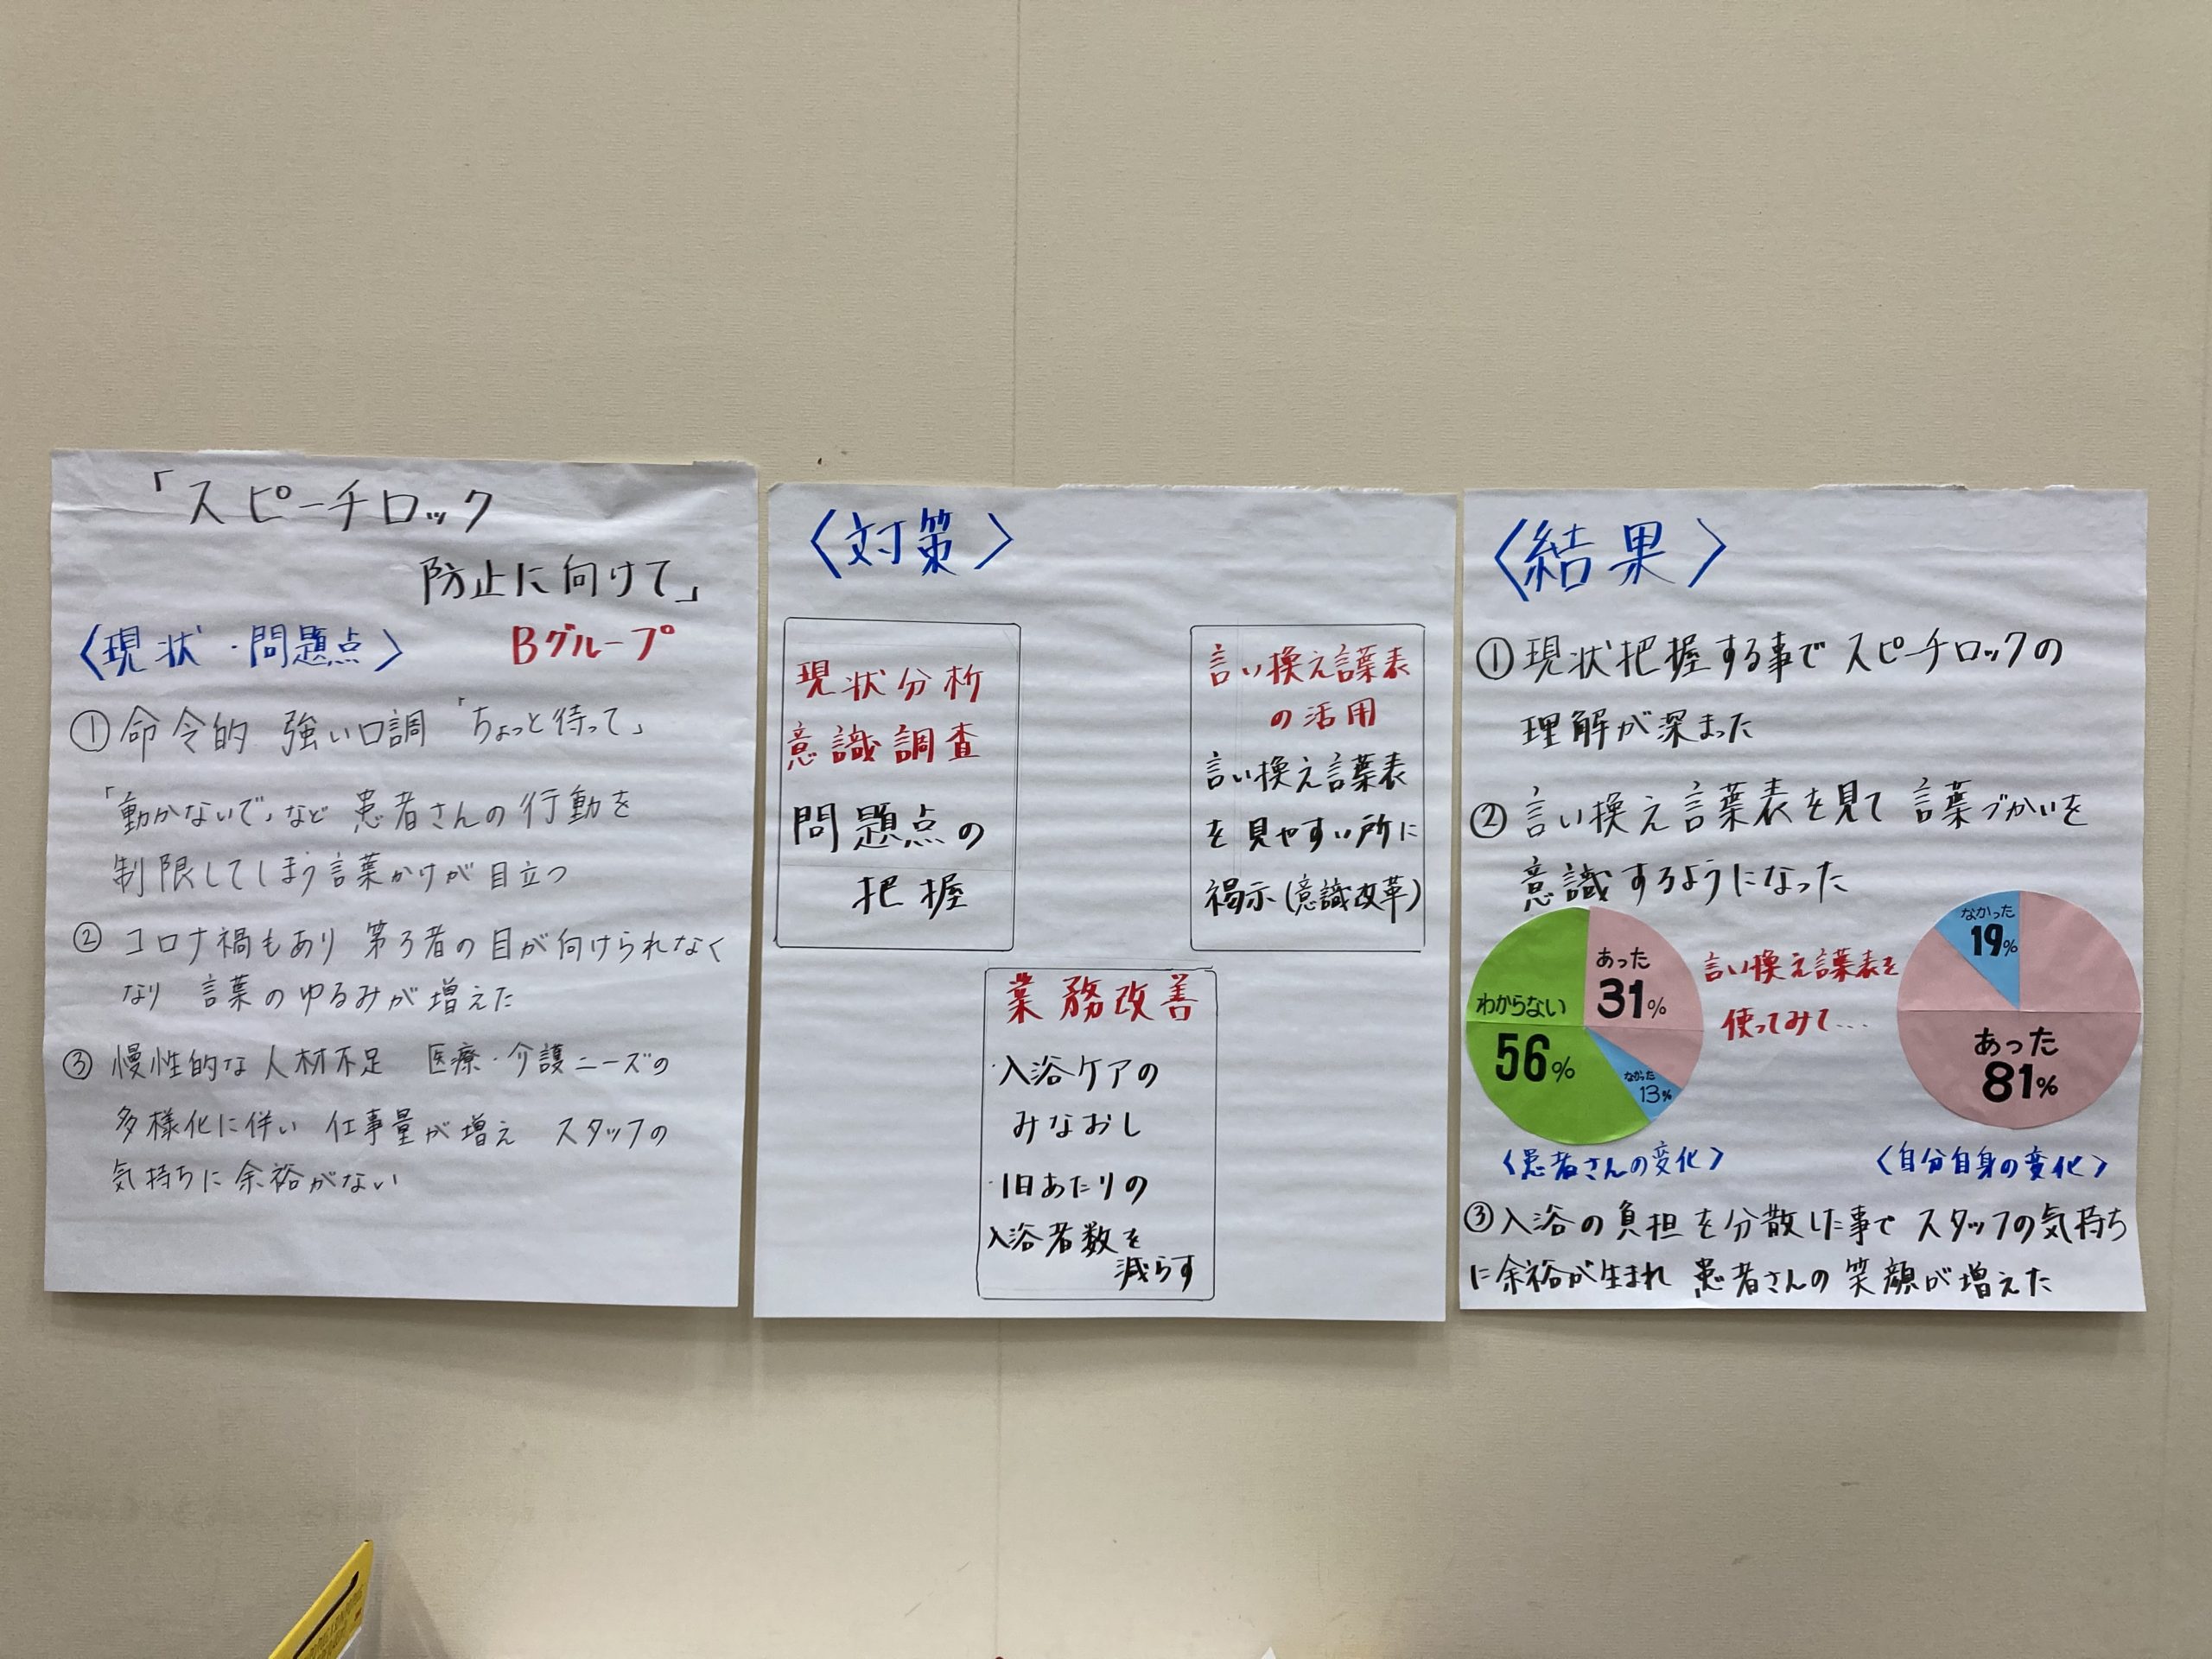 「スピーチロック
防止に向けて」
〈現状・問題点〉 Bグループ
① 命令的 強い口調 「ちょっと待って」
「動かないで」など 患者さんの行動を
制限してしまう言葉かけが目立つ
② コロナ禍もあり 第3者の目が向けられなく
なり 言葉のゆるみが増えた
③ 慢性的な人材不足 医療・介護ニーズの
多様化に伴い 仕事量が増え スタッフの
気持ちに余裕がない
〈対策〉
現状分析
意識調査
問題点の
把握
言い換え言葉表
の活用
言い換え言葉表
を見やすい所に
掲示(意識改革)
業務改善
・入浴ケアの
みなおし
・1日あたりの
入浴者数を
減らす
〈結果〉
①現状把握する事でスピーチロックの
理解が深まった
② 言い換え言葉表を見て 言葉づかいを
意識するようになった
あった
31%
わからない
56%
なかった
13%
言い換え言葉表を
使ってみて…
なかった
19%
あった
81%
〈患者さんの変化〉
〈自分自身の変化〉
③入浴の負担を分散した事で スタッフの気持ち
に余裕が生まれ 患者さんの笑顔が増えた